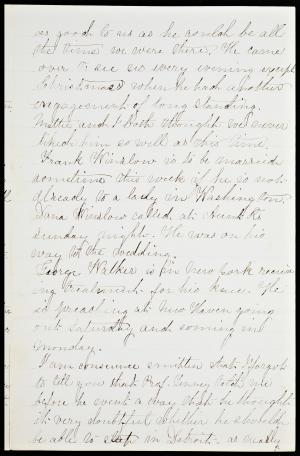 as good to us as he could be all
the time we were there. He came
over to see us every evening except
Christmas when he had another
engagement of long standing.
Mattie and I both thought we never
liked him so well as this time.
Frank Winslow is to be married
sometime this week if he is not
already to a lady in Washington.
Dana Winslow called at Aunt
Sunday night. He was on his
way to the wedding.
George Walker is in New York receiv
ing treatment for his knee. He
is preaching at New Haven going
out Saturday and coming in
Monday.
I am conscience smitten that I forgot
to tell you that Prof. told me
before he went away that he thought
it very doubtful whether he should
be able to stop in Detroit. as really